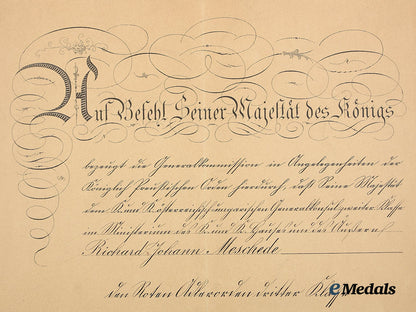 Auf Befehl Seiner Majestät des Königs
bezeugt die Generalkommission in Angelegenheiten der
Königlich Preußischen Orden hierdurch, daß Seine Majestät
dem K. und K. österreichisch-ungarischen Generalkonsul zweiter Klasse
im Ministerium des K. und K. Hauses und des Äußern
Richard Johann Meschede
den Roten Adlerorden dritter Klasse
eMedals